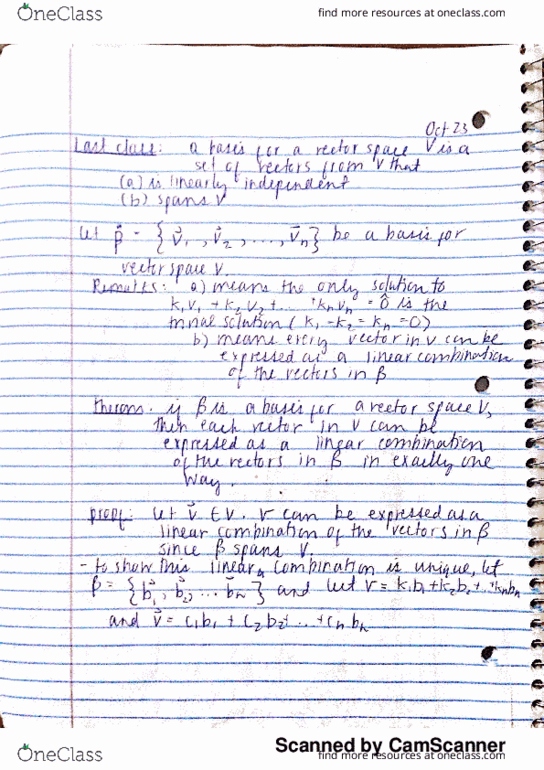 OneClass
find more resources at oneclass.com
Oct 23
Last class: a basis for a vector space V is a
set of vectors from V that
(a) is linearly independent
(b) spans V
let β = {v⃗₁, v⃗₂, ..., v⃗ₙ} be a basis for
vector space V.
Remarks: a) means the only solution to
k₁v₁ + k₂v₂ + ... + kₙvₙ = 0⃗ is the
trivial solution (k₁ = k₂ = kₙ = 0)
b) means every vector in V can be
expressed as a linear combination
of the vectors in β
if β is a basis for a vector space V,
then each vector in V can be
expressed as a linear combination
of the vectors in β in exactly one
way.
proof: Let v⃗ ∈ V. V can be expressed as a
linear combination of the vectors in β
since β spans V.
- to show this linear combination is unique, let
β = {b⃗₁, b⃗₂, ... b⃗ₙ} and let v = k₁b₁ + k₂b₂ + ... + kₙbₙ
and v⃗ = c₁b₁ + c₂b₂ + ... + cₙbₙ
Scanned by CamScanner
OneClass
find more resources at oneclass.com